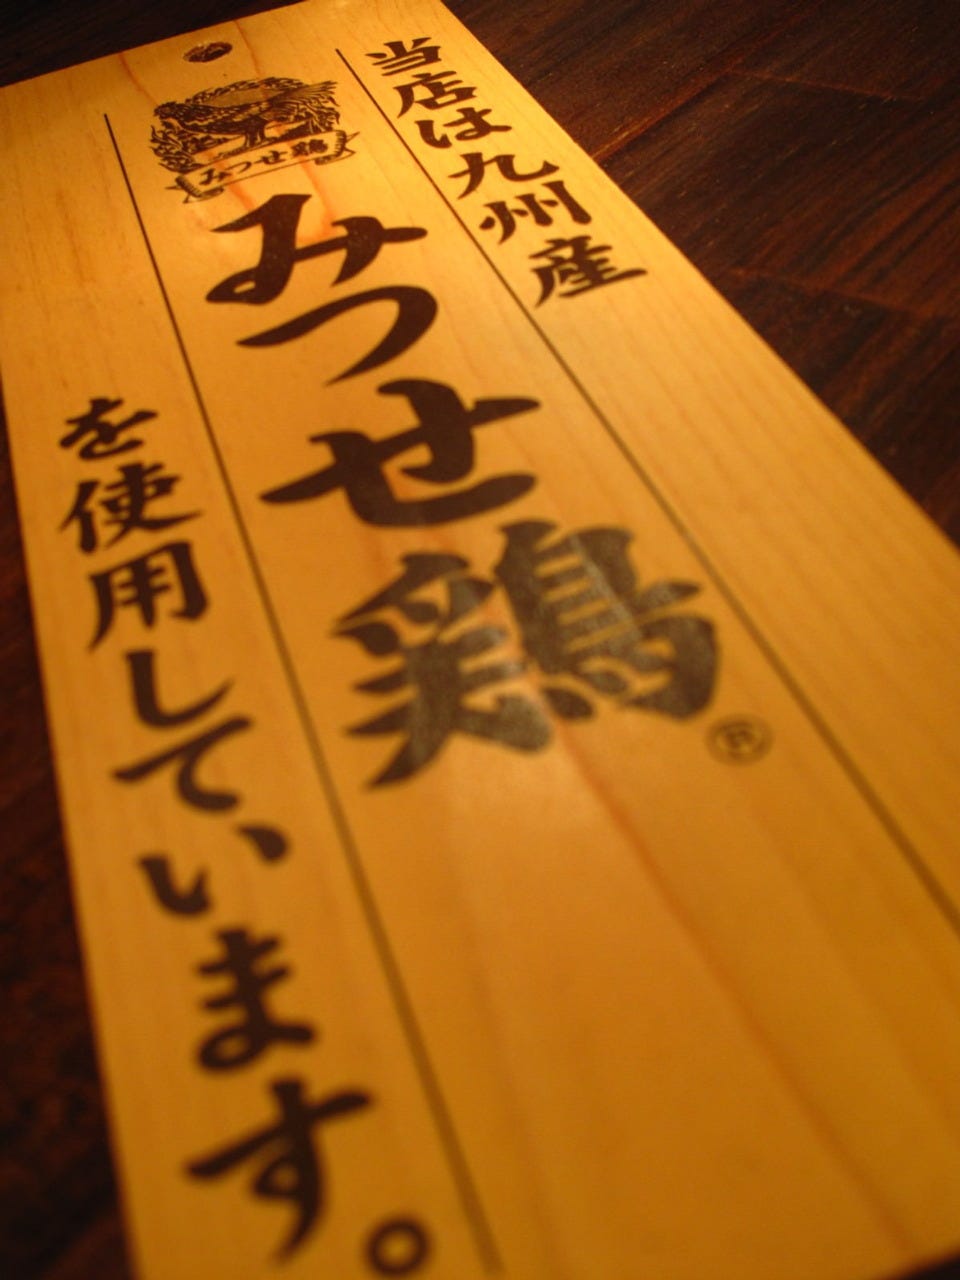 当店は九州産
みつせ鶏
みつせ鶏®
を使用しています。